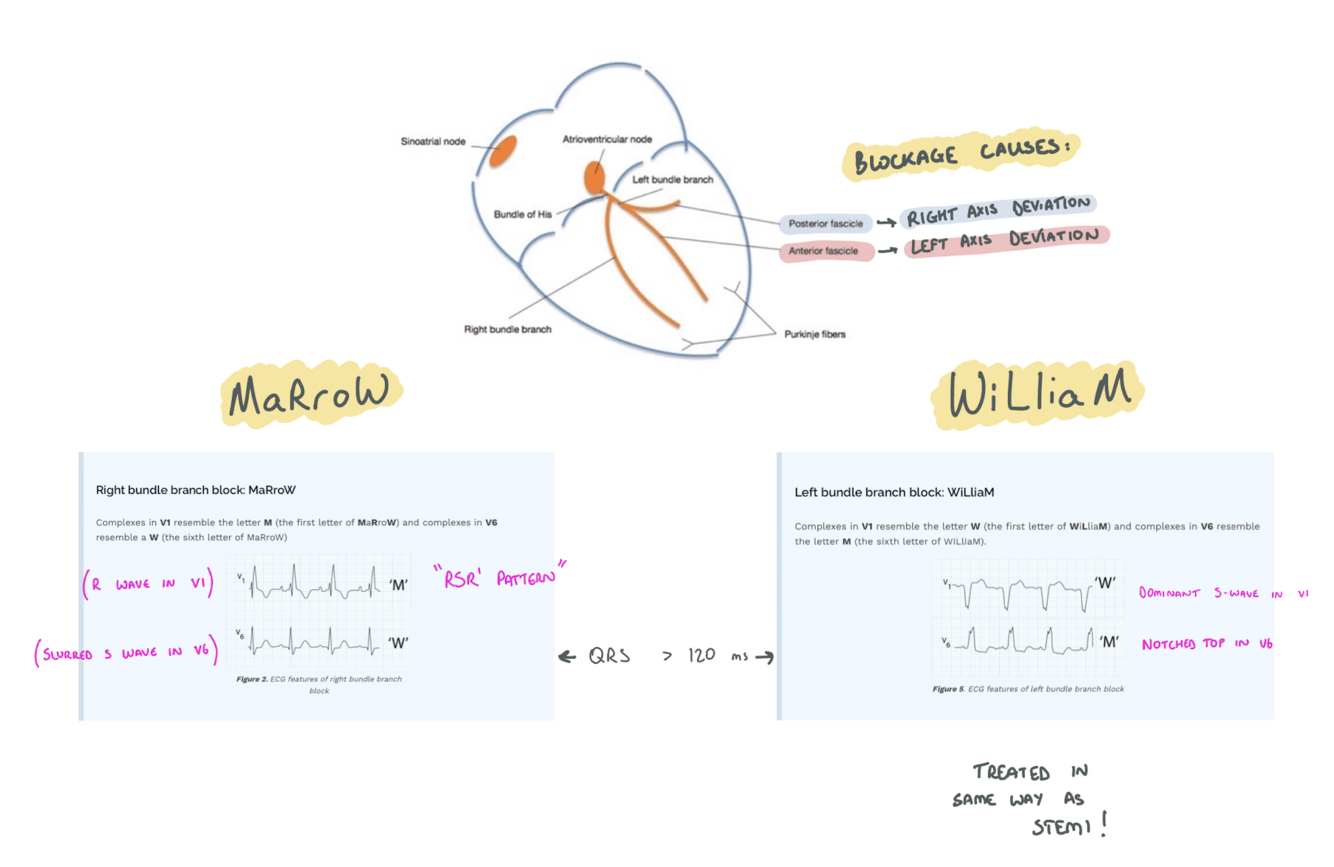 Sinoatrial node
Atrioventricular node
Left bundle branch
Bundle of His
Right bundle branch
Purkinje fibers
BLOCKAGE CAUSES:
Posterior fascicle → RIGHT AXIS DEVIATION
Anterior fascicle → LEFT AXIS DEVIATION
MaRroW
Right bundle branch block: MaRroW
Complexes in V1 resemble the letter M (the first letter of MaRroW) and complexes in V6
resemble a W (the sixth letter of MaRroW)
(R WAVE IN V1)
V1
'M'
"RSR' PATTERN"
(SLURRED S WAVE IN V6)
V6
'W'
Figure 2. ECG features of right bundle branch
block
← QRS > 120 ms →
WiLliaM
Left bundle branch block: WiLliaM
Complexes in V1 resemble the letter W (the first letter of WiLliaM) and complexes in V6 resemble
the letter M (the sixth letter of WiLliaM).
V1
'W'
DOMINANT S-WAVE IN V1
V6
'M'
NOTCHED TOP IN V6
Figure 5. ECG features of left bundle branch block
TREATED IN
SAME WAY AS
STEMI!